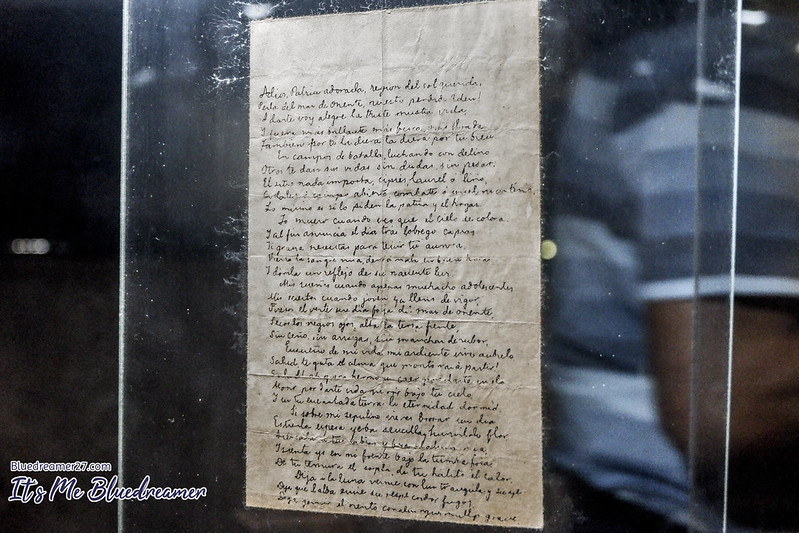 Adios, Patria adorada, region del sol querida,
Perla del mar de Oriente, nuestro perdido Eden!
A darte voy alegre la triste mustia vida,
Y fuera mas brillante mas fresca, mas florida
Tambien por ti la diera la diera por tu bien
En campos de batalla, luchando con delirio
Otros te dan sus vidas sin dudas, sin pesar;
El sitio nada importa, cipres, laurel o lirio,
Cadalso o campo abierto, combate o cruel martirio,
Lo mismo es si lo piden la patria y el hogar.
Yo muero cuando veo que el cielo se colora
Y al fin anuncia el dia tras lobrego capuz;
Si grana necesitas para teñir tu aurora,
Vierte la sangre mia, derramala en buen hora
Y dorela un reflejo de su naciente luz
Mis sueños cuando apenas muchacho adolescente,
Mis sueños cuando joven ya lleno de vigor,
Fueron el verte un dia joya del mar de oriente,
Secos los negros ojos, alta la tersa frente,
Sin ceño, sin arrugas, sin manchas de rubor.
Ensueño de mi vida, mi ardiente vivo anhelo
Salud te grita el alma que pronto va a partir!
Salud! que es hermoso caer por darte vuelo
Morir por darte vida, morir bajo tu cielo,
Y en tu encantada tierra la eternidad dormir
Si sobre mi sepulcro vieres brotar un dia
Entre la espesa yerba sencilla, humilde flor,
tus labios y
Y sienta yo en mi frente bajo la tumba fria
De tu ternura el soplo de tu halito el calor.
Deja a la luna verme con luz tranquila y suave
Deja que el alba envie su resplandor fugaz
Deja gemir el viento con su murmullo grave
Bluedreamer27.com
It's Me Bluedreamer